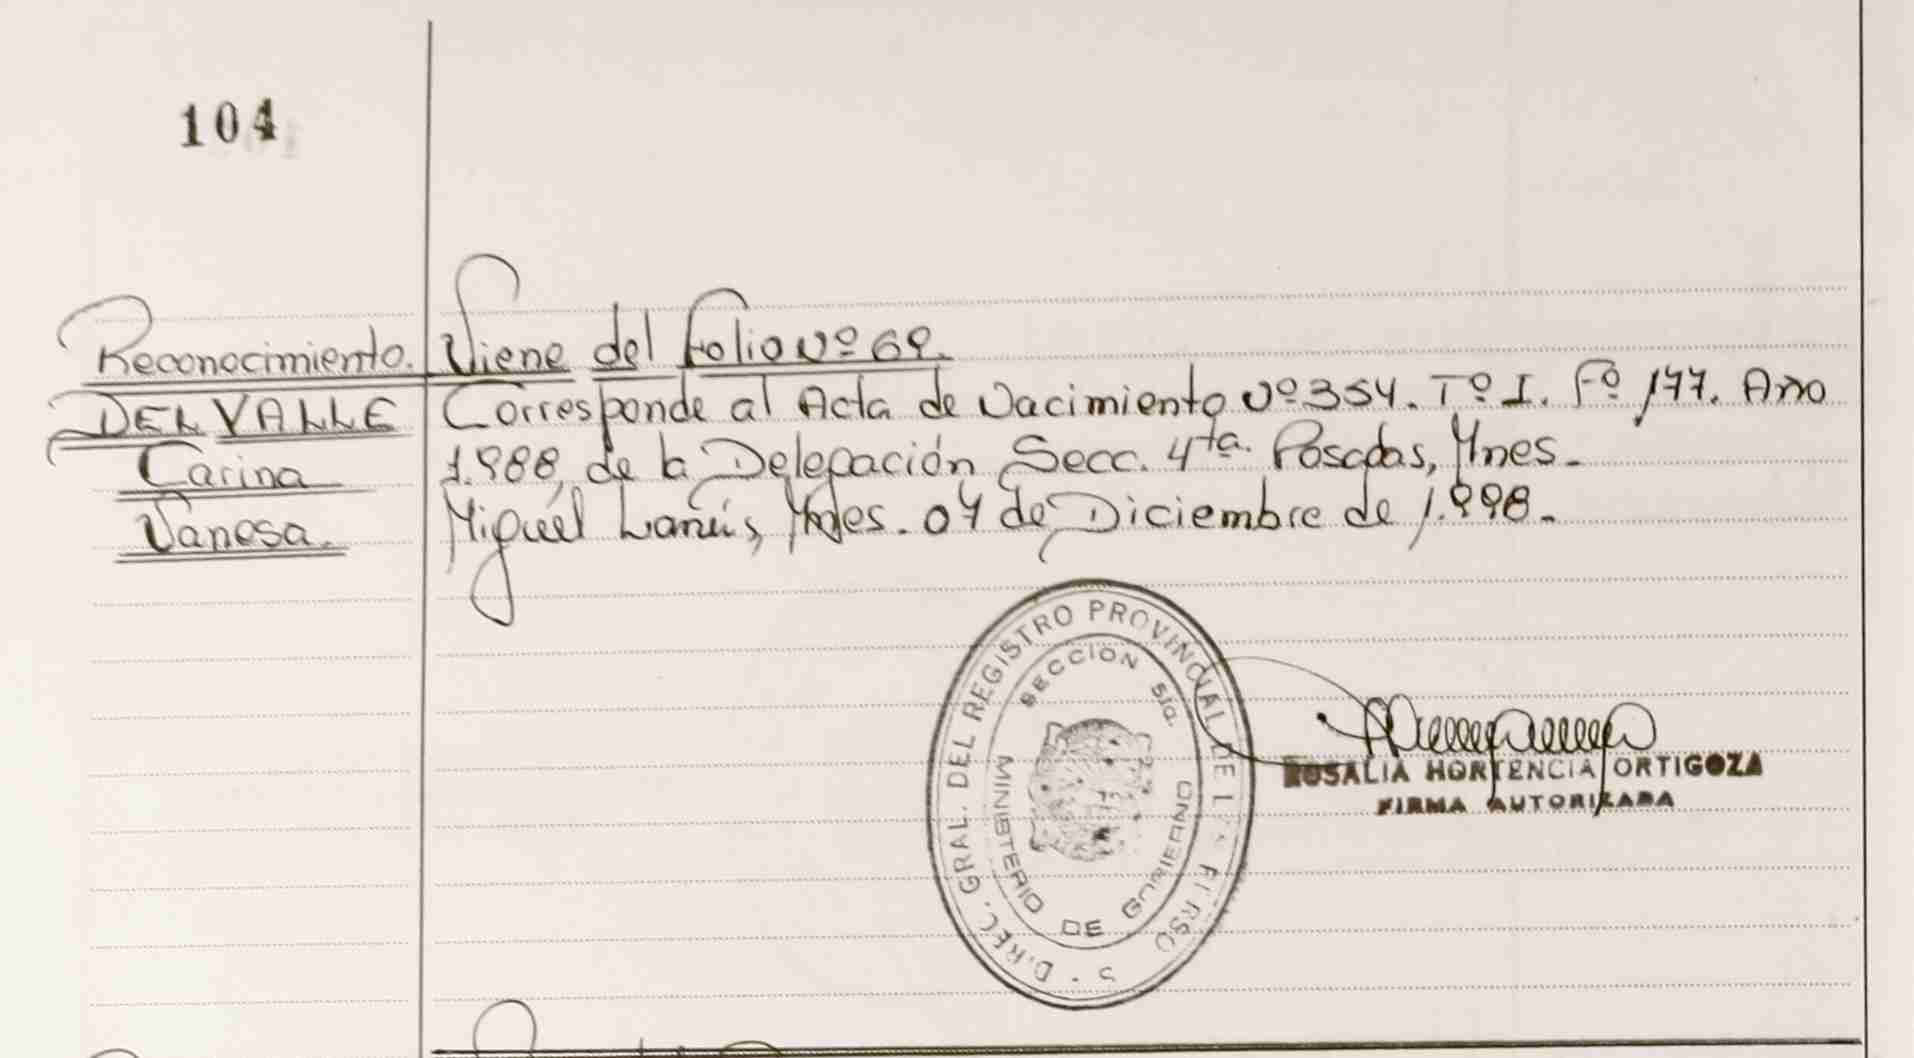 104
Reconocimiento.
DEL VALLE
Carina
Vanesa.
Viene del Folio Nº 69.
Corresponde al Acta de Nacimiento Nº 354. Tº I. Fº 177. Año
1.988, de la Delegación Secc. 4ta. Posadas, Mnes.
Miguel Lanús, Mnes. 04 de Diciembre de 1.998.
DIREC. GRAL. DEL REGISTRO PROVINCIAL DE L
SECCION 5ta.
MINISTERIO DE GOBIERNO
ROSALIA HORTENCIA ORTIGOZA
FIRMA AUTORIZADA